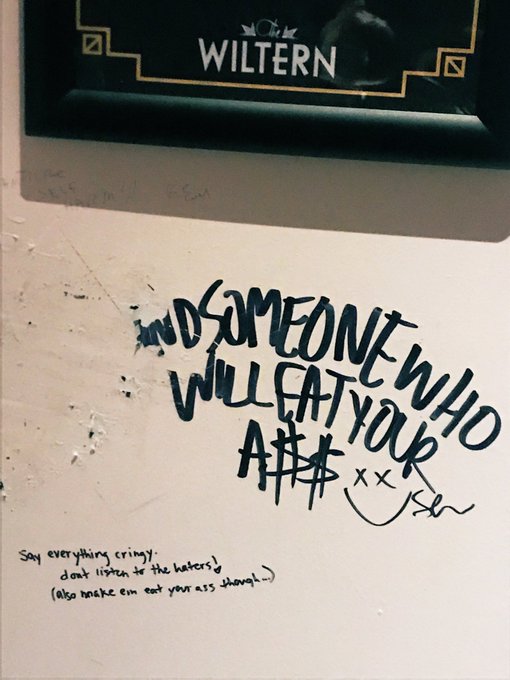 The
WILTERN
SOMEONE WHO
WILL EAT YOUR
A$$
xx
say everything cringy.
dont listen to the haters!
(also make em eat your ass though--)